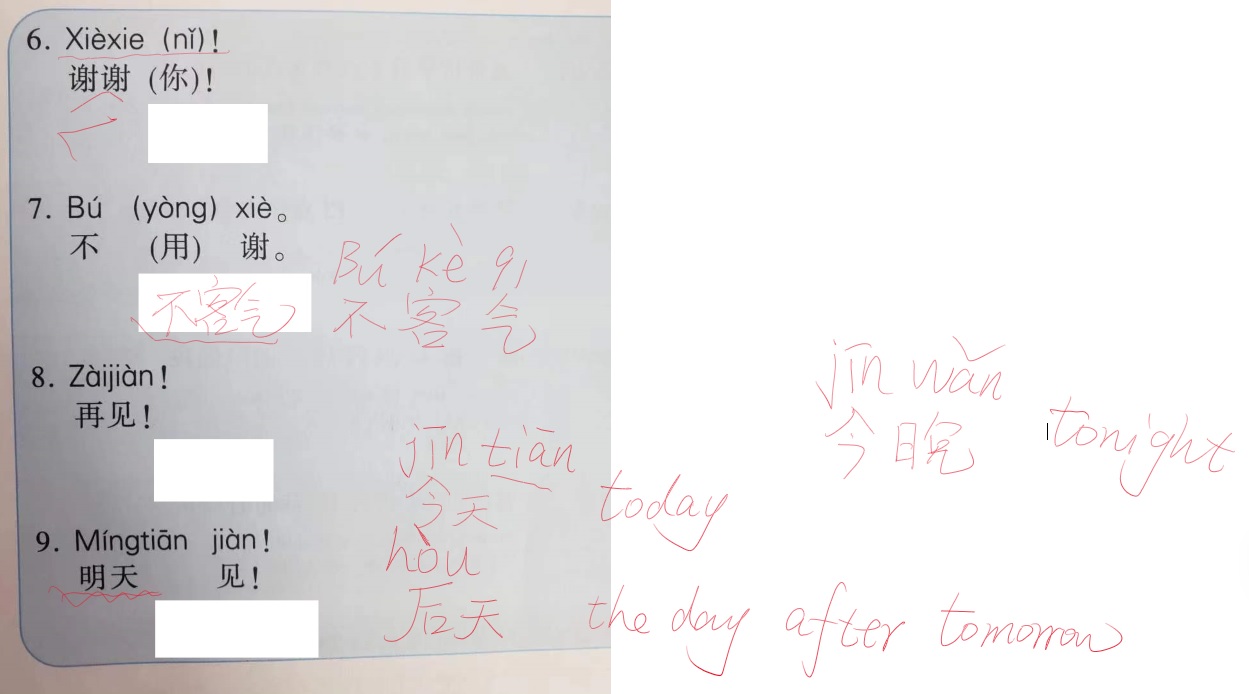 6. Xièxie (nǐ)!
谢谢 (你)!
7. Bú (yòng) xiè。
不 (用) 谢。
Bú kè qi
不客气
不客气
8. Zàijiàn!
再见!
jīn wǎn
今晚 tonight
jīn tiān
今天 today
9. Míngtiān jiàn!
明天 见!
hòu
后天 the day after tomorrow